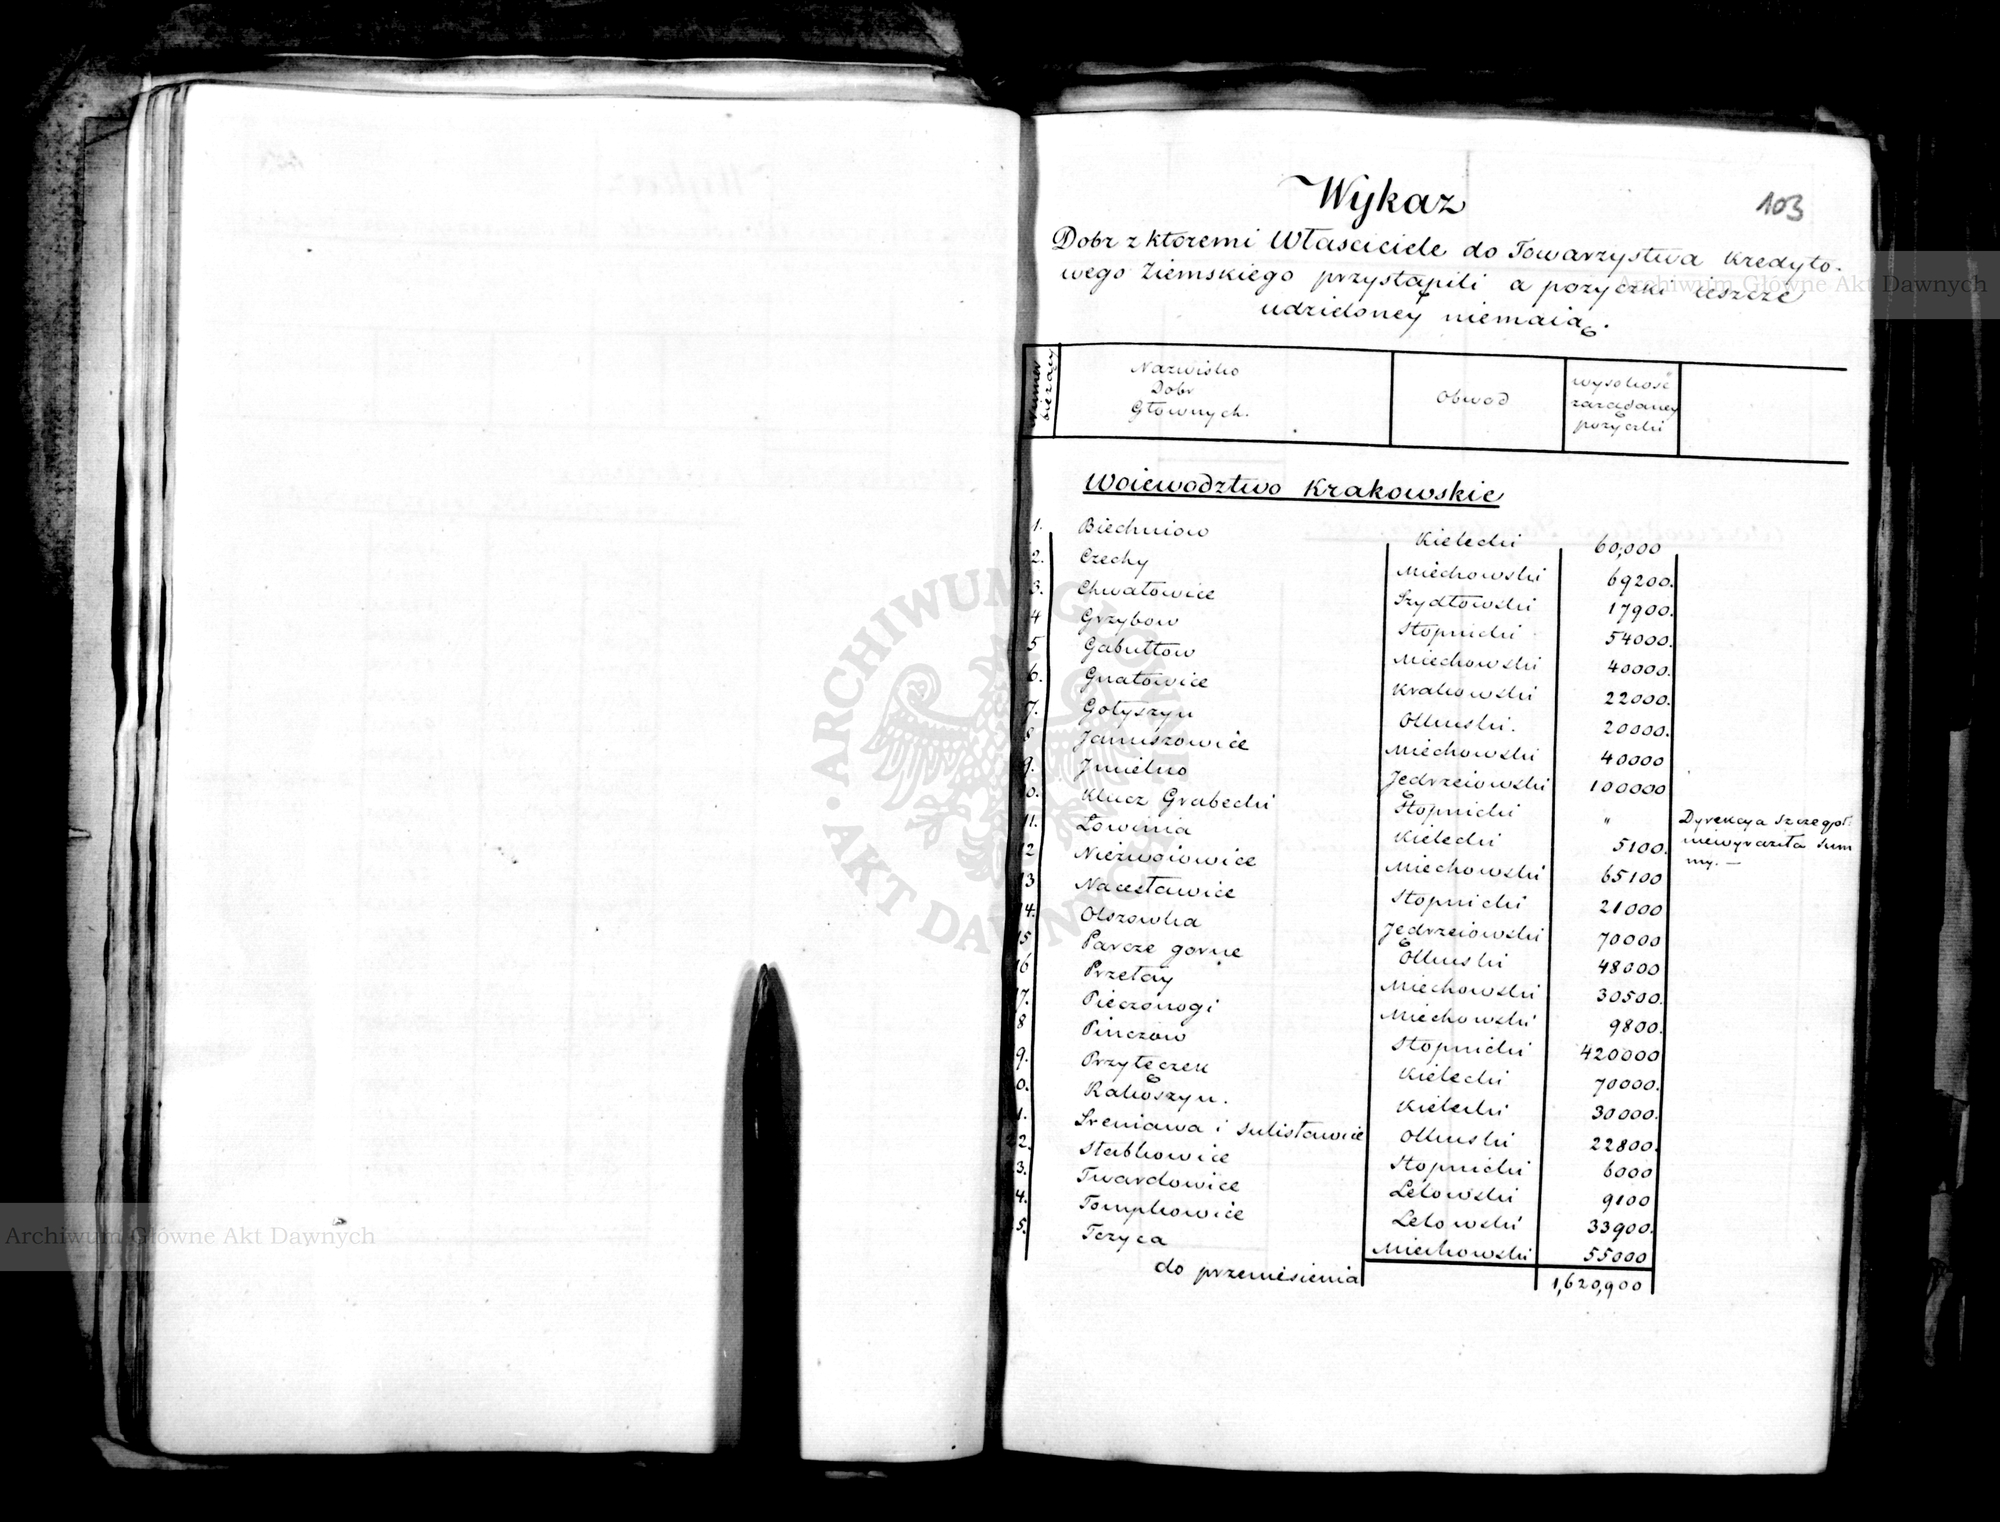 103
Wykaz
Dobr z ktoremi Własciciele do Towarzystwa Kredyto-
wego Ziemskiego przystąpili a pożyczki ieszcze
udzieloney niemaią.
Numer bieżący
Nazwisko Dobr Głownych.
Obwod
wysokość zażądaney pożyczki
Woiewodztwo Krakowskie
1. Biechniow Kielecki 60,000
2. Czechy Miechowski 69200.
3. Chwałowice Szydłowski 17900.
4 Grzybow Stopnicki 54000.
5 Gabułtow Miechowski 40000.
6. Gnatowice Krakowski 22000.
7. Gołyszyn Olkuski. 20000.
8 Januszowice Miechowski 40000
9. Jmielno Jędrzeiowski 100000
0. Klucz Grabecki Stopnicki " Dyrekcya Szczegoł:
niewyraziła Sum
my.—
11. Łowinia Kielecki 5100.
12 Nieżwoiowice Miechowski 65100
13 Nacesławice Stopnicki 21000
14. Olszowka Jędrzeiowski 70000
15 Parcze gorne Olkuski 48000
16 Przełay Miechowski 30500.
17. Pieczonogi Miechowski 9800.
8 Pinczow Stopnicki 420000
9. Przyłęczek Kielecki 70000.
0. Rakoszyn. Kielecki 30000.
1. Sreniawa i Sulisławice Olkuski 22800.
2. Słabkowice Stopnicki 6000
3. Twardowice Lelowski 9100
4. Tompkowice Lelowski 33900.
5. Tczyca Miechowski 55000
do przeniesienia 1,620,900
ARCHIWUM GŁÓWNE AKT DAWNYCH
Archiwum Główne Akt Dawnych
Archiwum Główne Akt Dawnych